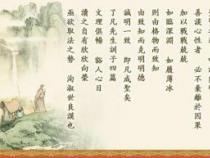 善護心性者 必不棄離於因果
加以戰戰兢兢
如臨深淵 如履薄冰
則由格物而致知
由致知而克明明德
誠明一致 即凡成聖矣
了凡先生訓子四篇
文理俱暢 豁人心目
讀之自有欣欣向榮
亟欲取法之勢 洵淑世良謨也